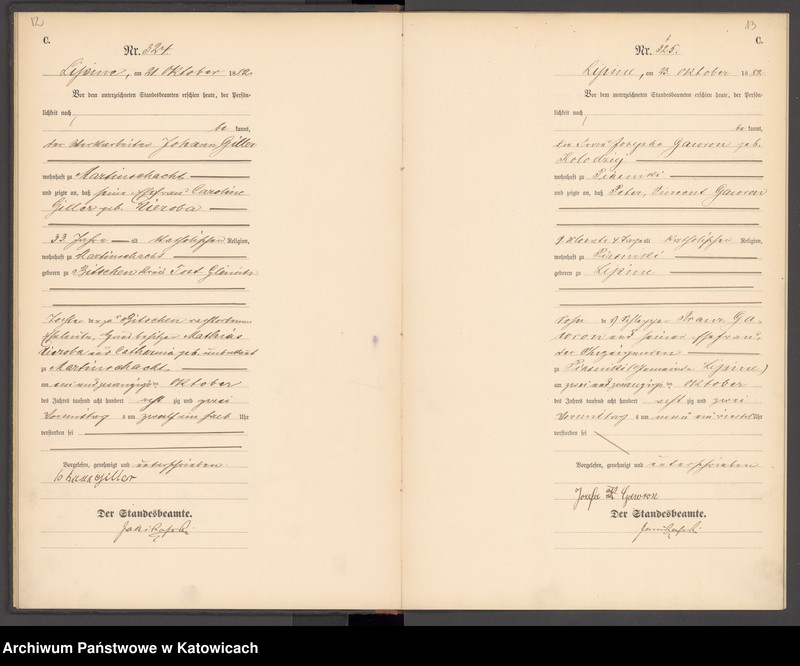 12
C.
Nr. 324
Lipine, am 21 Oktober 1882.
Vor dem unterzeichneten Standesbeamten erschien heute, der Persön-
lichkeit nach
be kannt,
der Werkarbeiter Johann Giller
wohnhaft zu Martinschacht
und zeigte an, daß seine Ehefrau Caroline
Giller geb. Nieroba
33 Jahre alt katholischer Religion,
wohnhaft zu Martinschacht
geboren zu Bitschen Kreis Tost Gleiwitz
Tochter der zu Bitschen verstorbenen
Eheleute, Mathias
Nieroba und Catharina geb. unbekannt
zu Martinschacht
am ein und zwanzigsten Oktober
des Jahres tausend acht hundert acht zig und zwei
Vormittags um zwölf ein halb Uhr
verstorben sei
Vorgelesen, genehmigt und unterschrieben
Johann Giller
Der Standesbeamte.
13
C.
Nr. 325.
Lipine, am 23. Oktober 1882.
Vor dem unterzeichneten Standesbeamten erschien heute, der Persön-
lichkeit nach
be kannt,
die Josepha Gawron geb.
Kolodziej
wohnhaft zu Piasniki
und zeigte an, daß Peter, Vincent Gawron
9 Monate 4 Tage alt katholischer Religion,
wohnhaft zu Piasniki
geboren zu Lipine
Sohn des Schlepper Franz Ga-
wron und seiner Ehefrau
der Anzeigenden
zu Piasniki (Gemeinde Lipine)
am zwei und zwanzigsten Oktober
des Jahres tausend acht hundert acht zig und zwei
Vormittags um neun ein viertel Uhr
verstorben sei
Vorgelesen, genehmigt und unterschrieben
Josefa Gawron
Der Standesbeamte.
Archiwum Państwowe w Katowicach